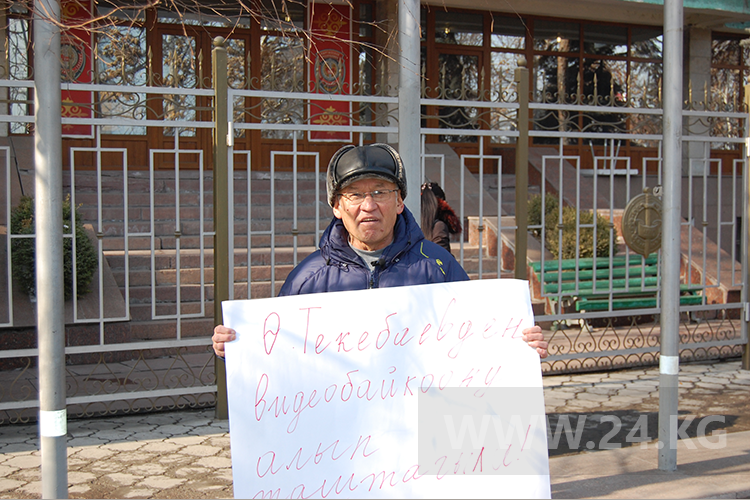 Ө. Текебаевден
видеобайкоону
алып
таштагыла!
WWW.24.KG